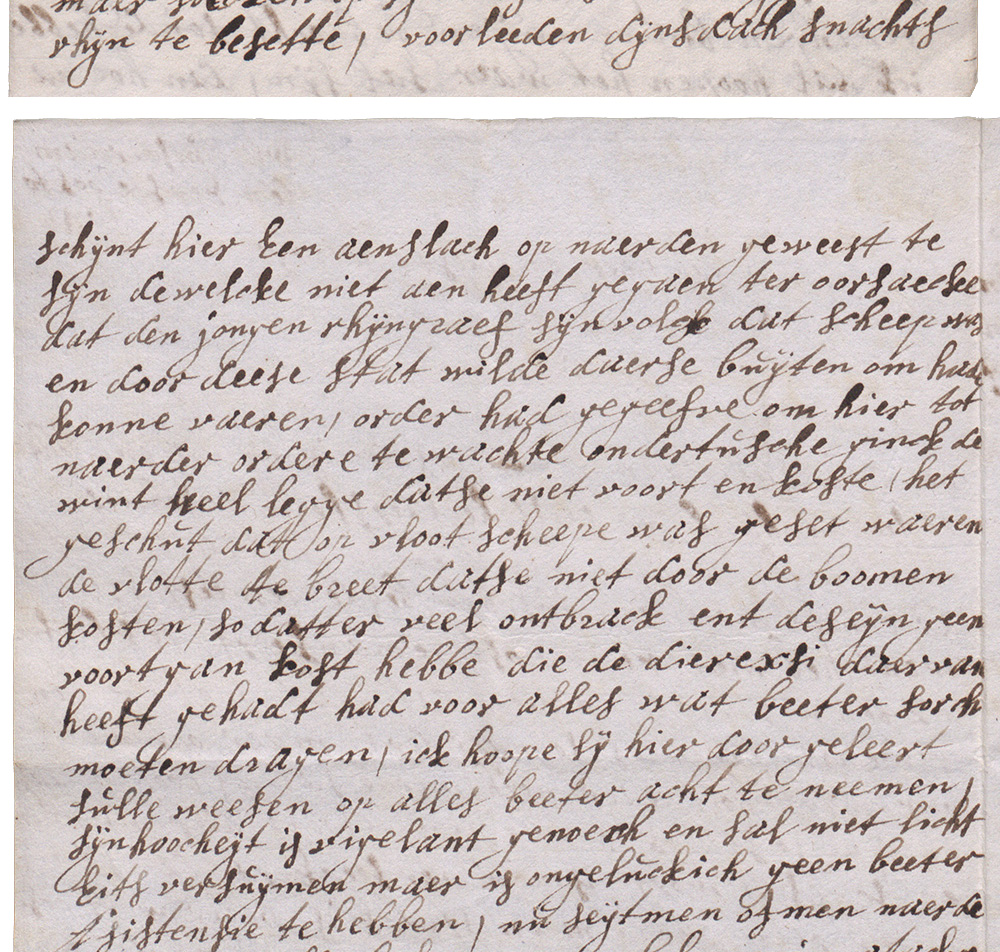 rhÿn te besette, voorleeden dÿnsdach snachts
schÿnt hier Een aenslach op naerden geweest te
sÿn dewelcke niet aen heeft gegaen ter oorsaecke
dat den jongen rhÿngraef sÿn volck dat scheep was
en door deese stat wilde daerse buÿten om hadde
konne vaeren, order had gegeefve om hier tot
naerder ordere te wachte ondertusche ginck de
wint heel legge datse niet voort en koste, het
geschut dat op vloot scheepe was geset waeren
de vlotte te breet datse niet door de boomen
kosten, so datter veel ontbrack ent deseÿn geen
voortgan kost hebbe die de dierexsi daer van
heeft gehadt had voor alles wat beeter sorch
moeten dragen, ick hoope sÿ hier door geleert
sulle weesen op alles beeter acht te neemen,
sÿnhoocheÿt is vigelant genoech en sal niet licht
Eits versuÿmen maer is ongeluckich geen beeter
Asistensie te hebben, nu seÿtmen ofmen naerde